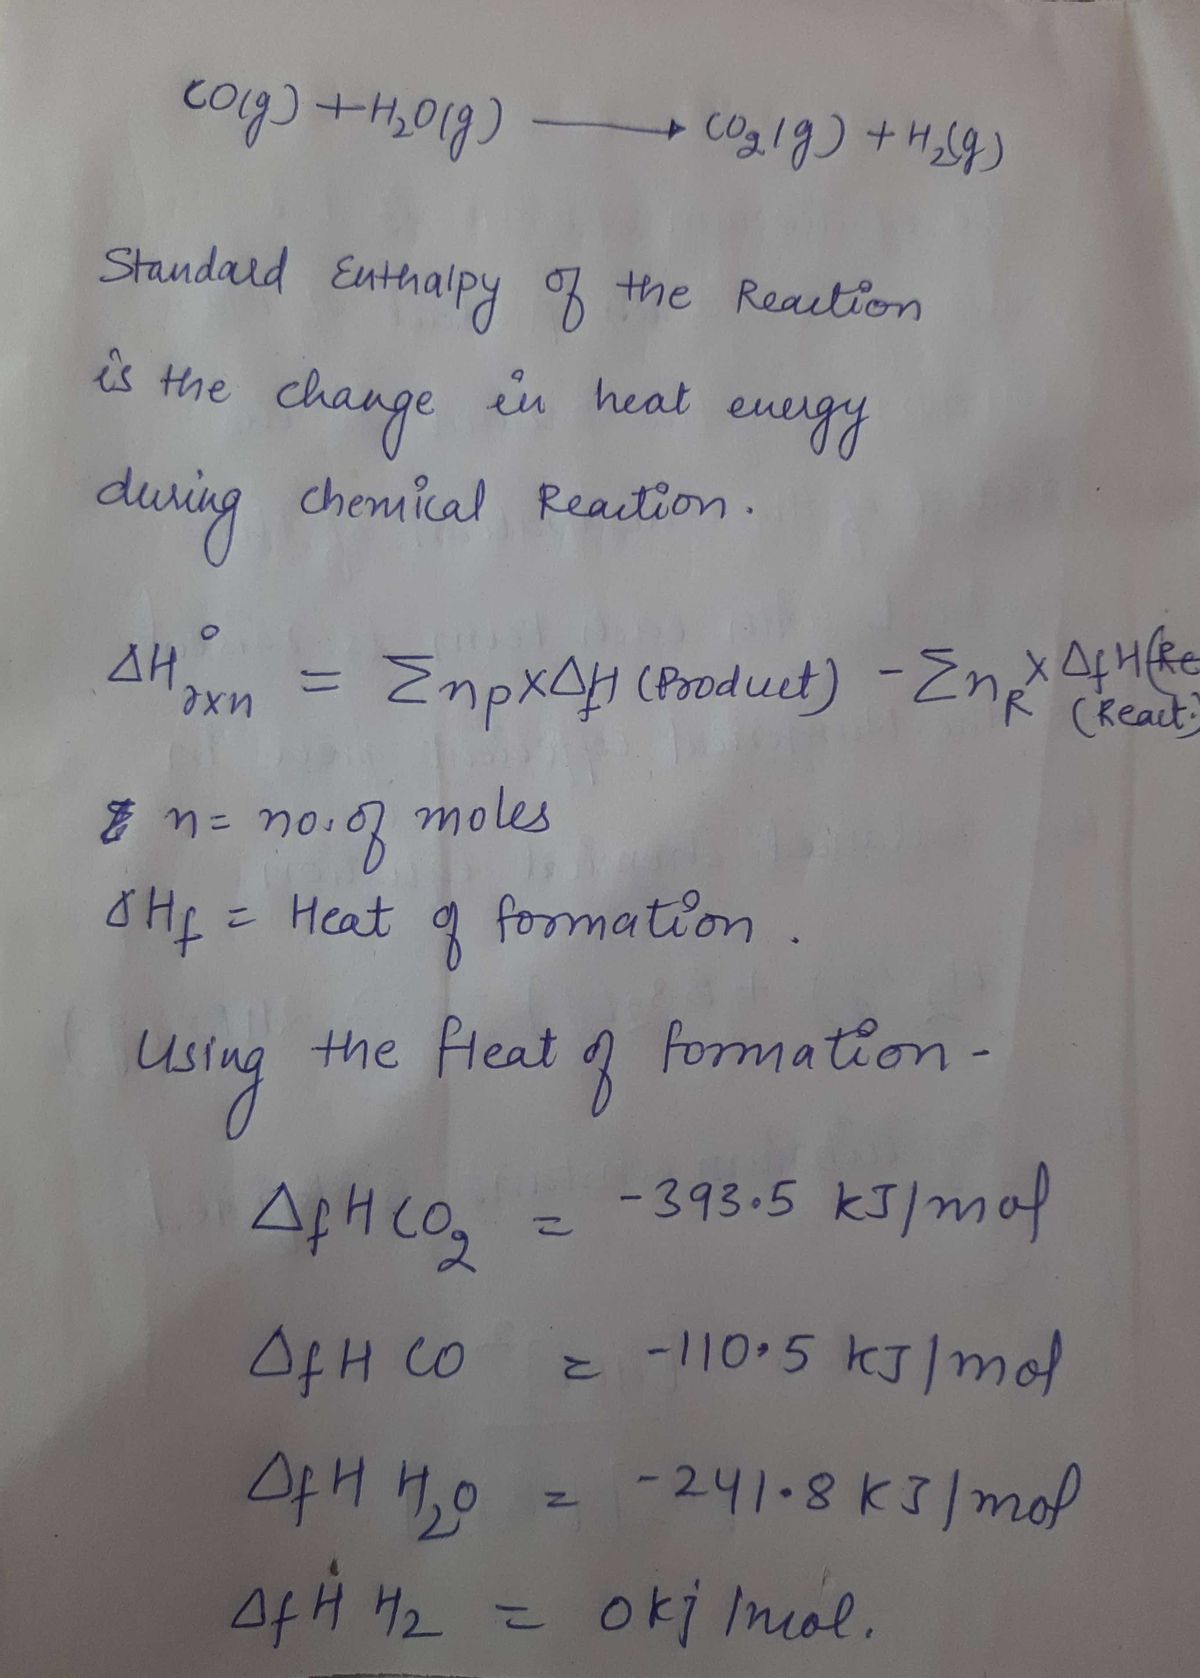 CO(g) + H₂O(g) ⟶ CO₂(g) + H₂(g)
Standard Enthalpy of the Reaction
is the change in heat energy
during chemical Reaction.
ΔH°rxn = Σnp×ΔfH (Product) - ΣnR × ΔfH (Re
(React.
n = no. of moles
ΔHf = Heat of formation.
Using the Heat of formation -
ΔfH CO₂ = -393.5 kJ/mol
ΔfH CO = -110.5 kJ/mol
ΔfH H₂O = -241.8 kJ/mol
ΔfH H₂ = 0 kj/mol.